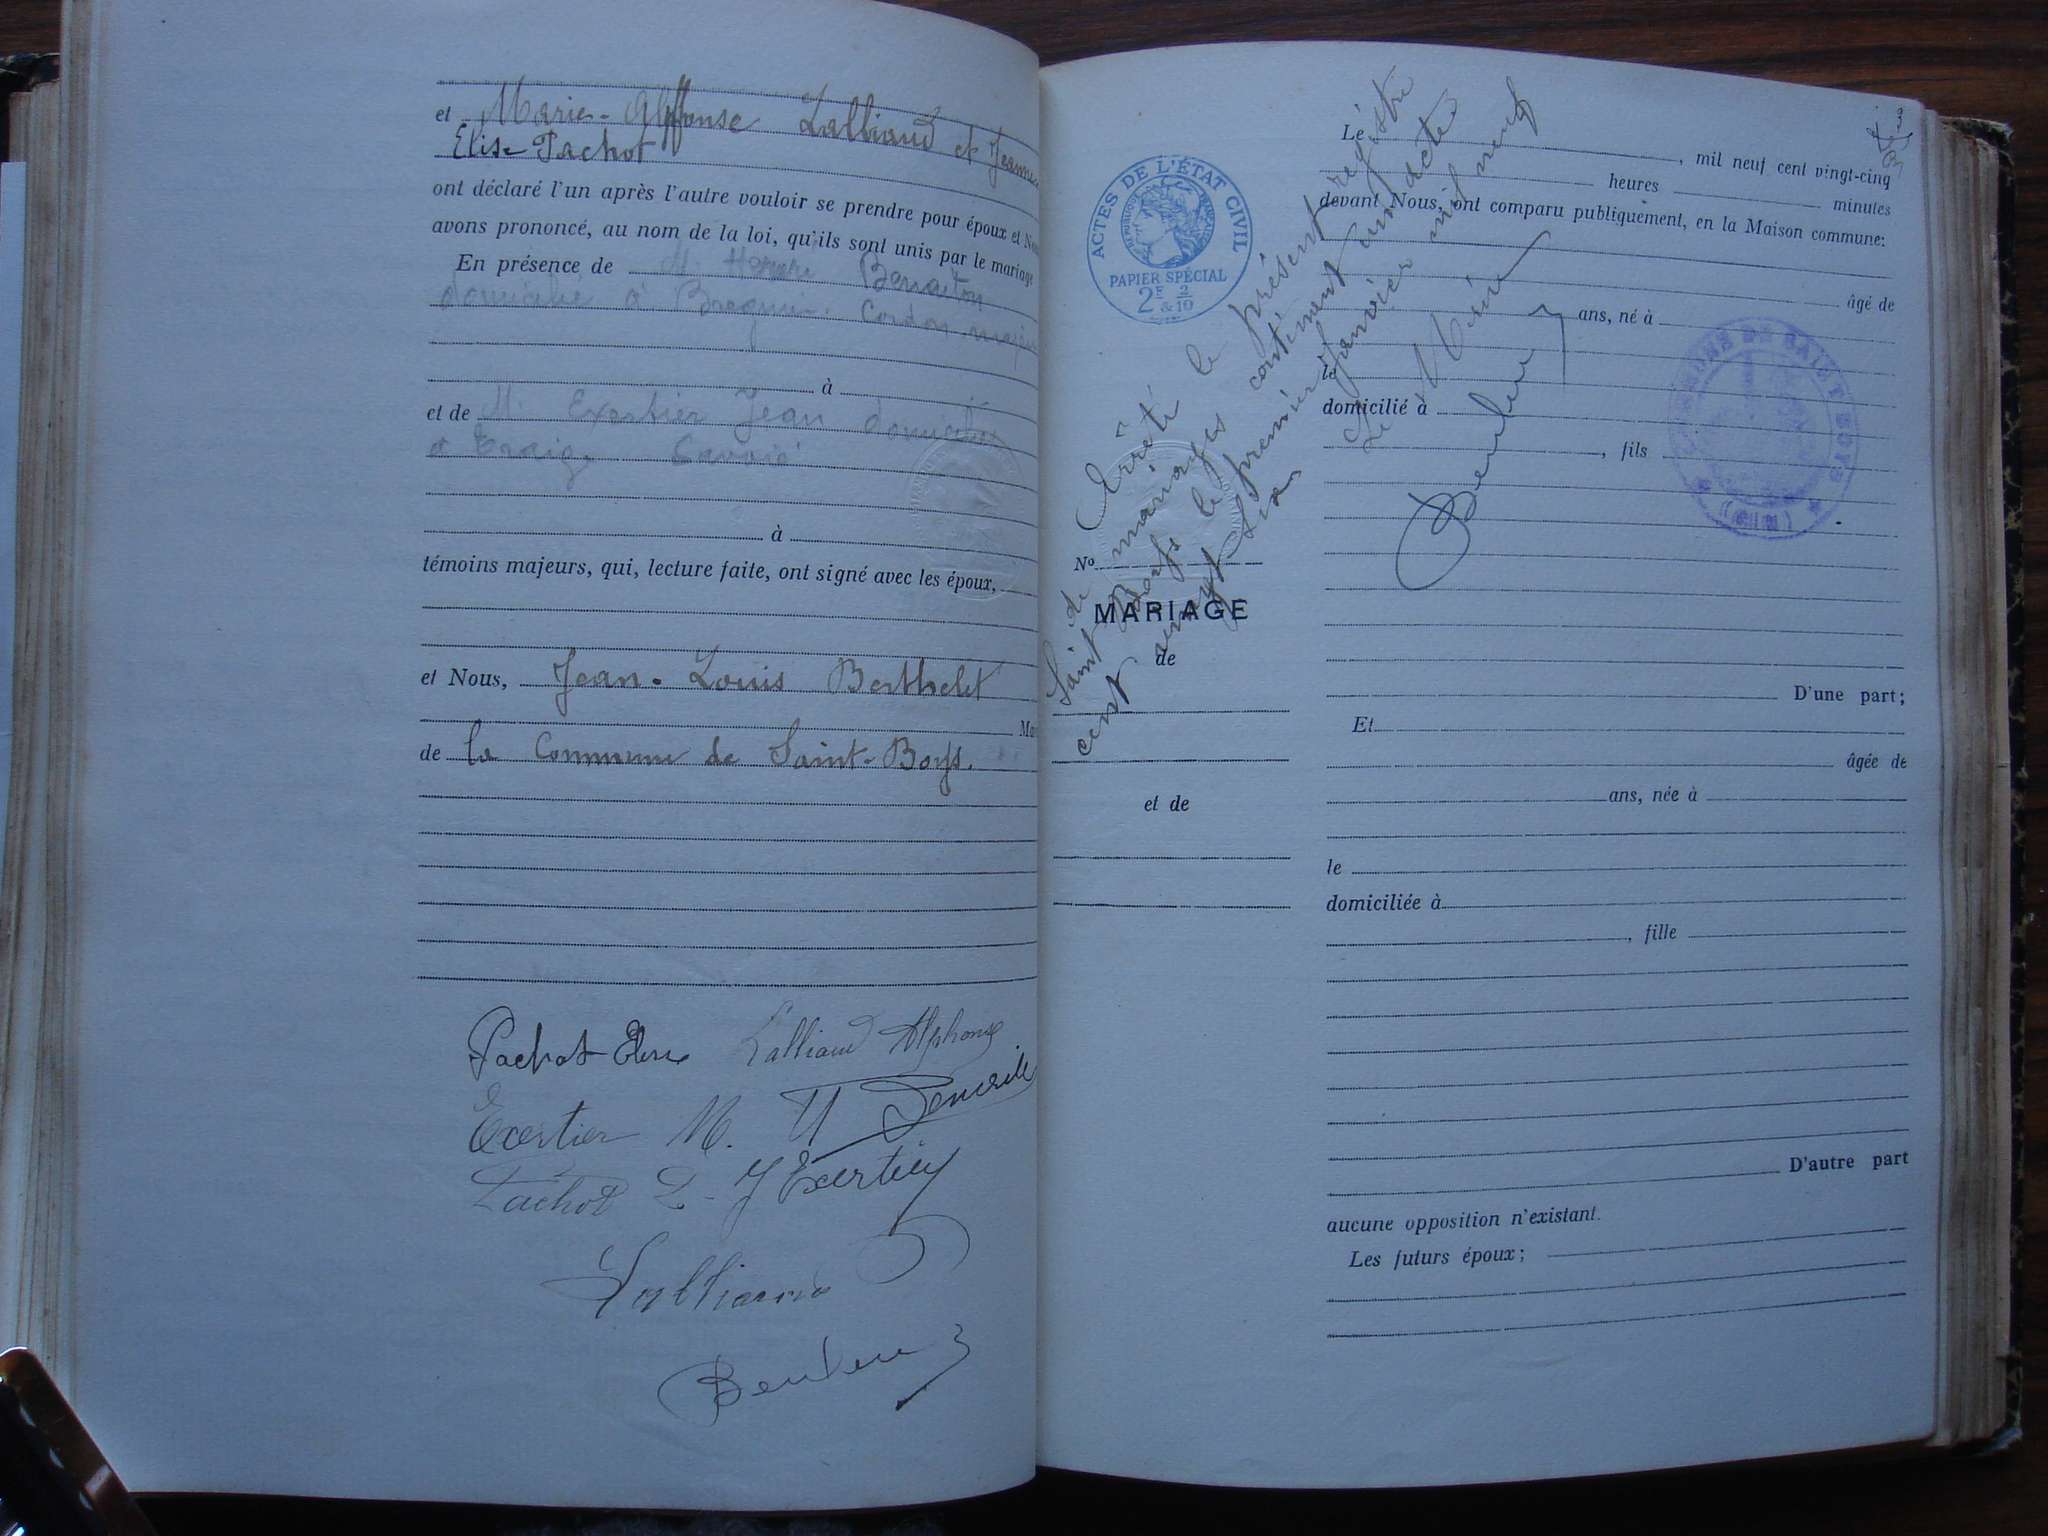 et Marie-Alphonse Lalliaud et Jeanne
Elise Pachot
ont déclaré l'un après l'autre vouloir se prendre pour époux et Nous
avons prononcé, au nom de la loi, qu'ils sont unis par le mariage
En présence de M.
domicilié à
à
et de M. Exertier Jean domicilié
à Savoie
à
témoins majeurs, qui, lecture faite, ont signé avec les époux,
et Nous, Jean-Louis Berthelet
Mai
de la Commune de Saint-Boys.
Pachot Elise Lalliaud Alphonse
Exertier M.
Pachot L. J Exertier
Lalliaud
3
ACTES DE L'ÉTAT CIVIL
RÉPUBLIQUE FRANÇAISE
PAPIER SPÉCIAL
2F & 2/10
Arrêté le présent registre
de mariages contenant un acte
Saint Boys le premier janvier mil neuf
cent vingt six
Le Maire
COMMUNE DE SAINT BOYS
(AIN)
No
MARIAGE
de
et de
Le , mil neuf cent vingt-cinq
heures minutes
devant Nous, ont comparu publiquement, en la Maison commune:
âgé de
ans, né à
le
domicilié à
, fils
D'une part;
Et
âgée de
ans, née à
le
domiciliée à
, fille
D'autre part
aucune opposition n'existant.
Les futurs époux;